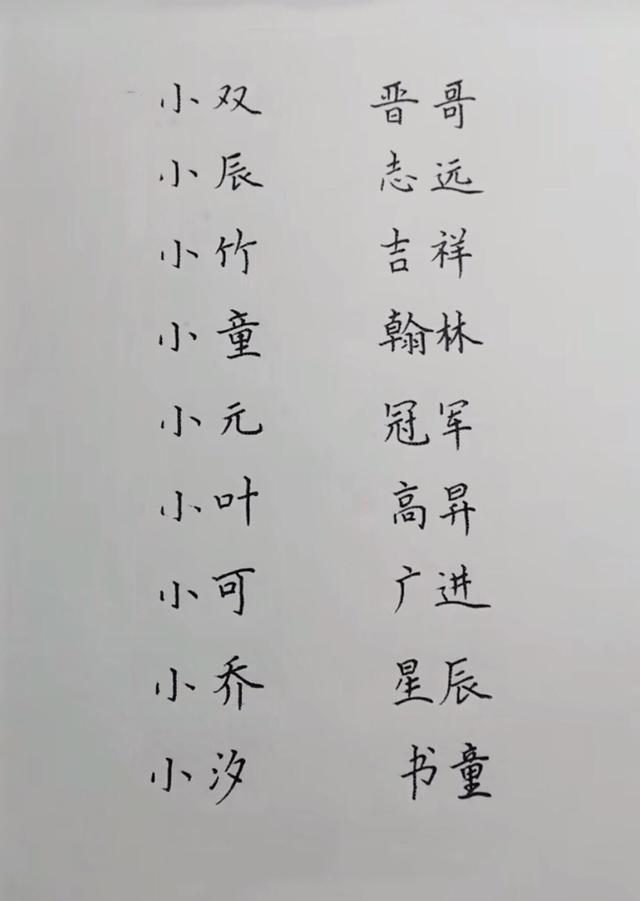 小双 晋哥
小辰 志远
小竹 吉祥
小童 翰林
小元 冠军
小叶 高昇
小可 广进
小乔 星辰
小汐 书童